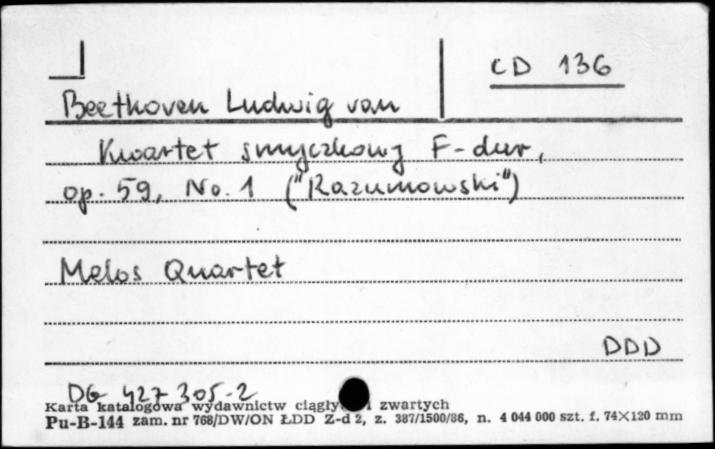 CD 136
Beethoven Ludwig van
Kwartet smyczkowy F-dur,
op. 59, No. 1 ("Razumowski")
Melos Quartet
DDD
DG 427 305-2
Karta katalogowa wydawnictw ciągły i zwartych
Pu-B-144 zam. nr 768/DW/ON ŁDD Z-d 2, z. 387/1500/86, n. 4 044 000 szt. f. 74×120 mm